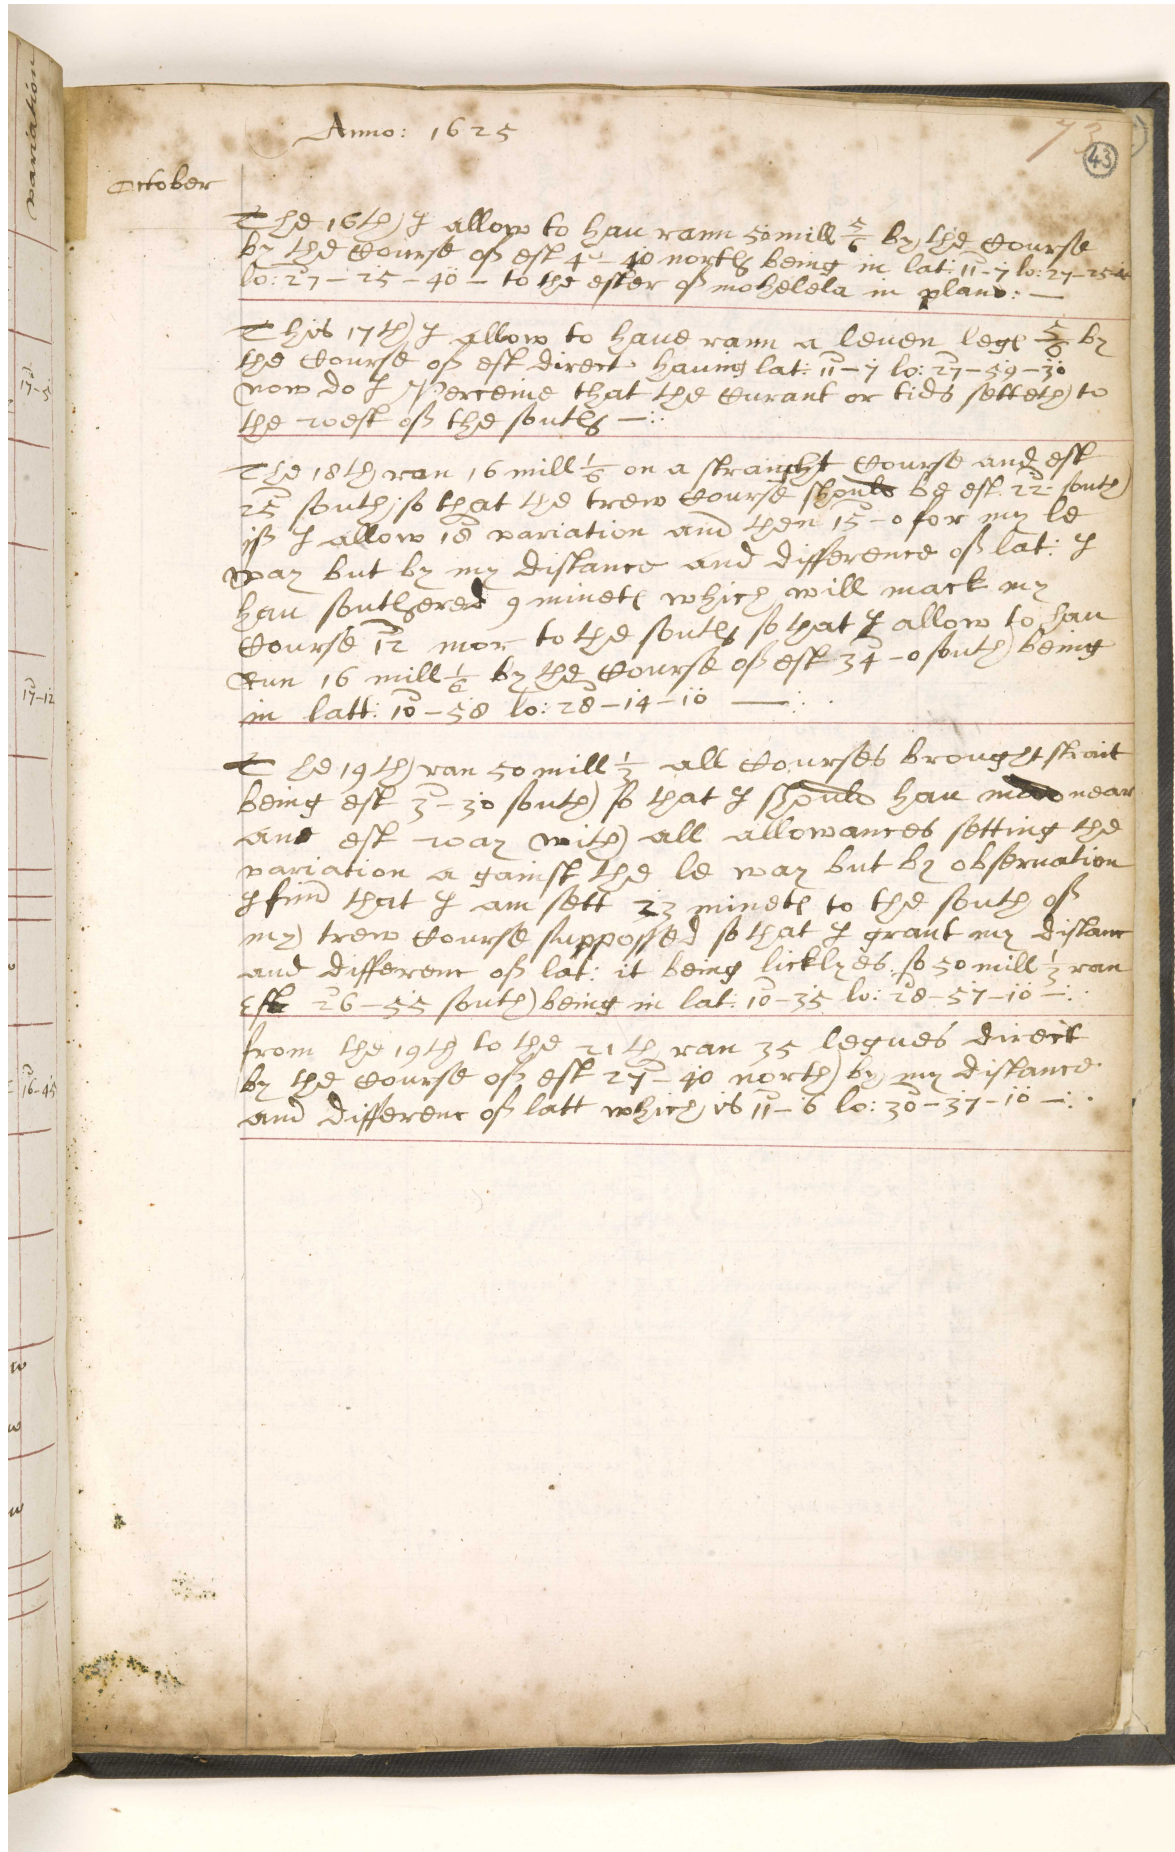 variation
Anno: 1625
73
43
October
The 16th I allow to hau rann 50 mill 5/6 by the Course
by the Course of est 4 - 40 north being in lat: 11-7 lo: 27-25-4
lo: 27 - 25 - 40 - to the ester of mohelela in plano: -
This 17th I allow to haue rann a leuen leg 5/6 by
the Course of est direct having lat: 11-7 lo: 27-59-30
now do I Perceiue that the Curant or tids setteth to
the west of the south -:
The 18th ran 16 mill 1/6 on a straight Course and est
25 south, so that the trew Course should be est 22: south
if I allow 18 variation and then 15-0 for my le
way but by my distance and difference of lat: I
hau southered 9 minets which will mack my
Course 12 mor to the south so that I allow to hau
Run 16 mill 1/6 by the Course of est 34-0 south being
in latt: 10-58 lo: 28-14-10 -:
The 19th ran 50 mill 1/3 all Courses brought strait
being est 3-30 south so that I should hau near
ane est way with all allowances setting the
variation a gainst the le way but by obseruation
I find that I am sett 23 minets to the south of
my trew Course suppossed so that I grant my distanc
and differenc of lat: it being licklyes so 50 mill 1/3 ran
Est 26-55 south being in lat: 10-35 lo: 28-57-10 -:
from the 19th to the 21th ran 35 legues direct
by the Course of est 27-40 north by my distance
and differenc of latt which is 11-6 lo: 30-37-10 -:
17-12
16-45